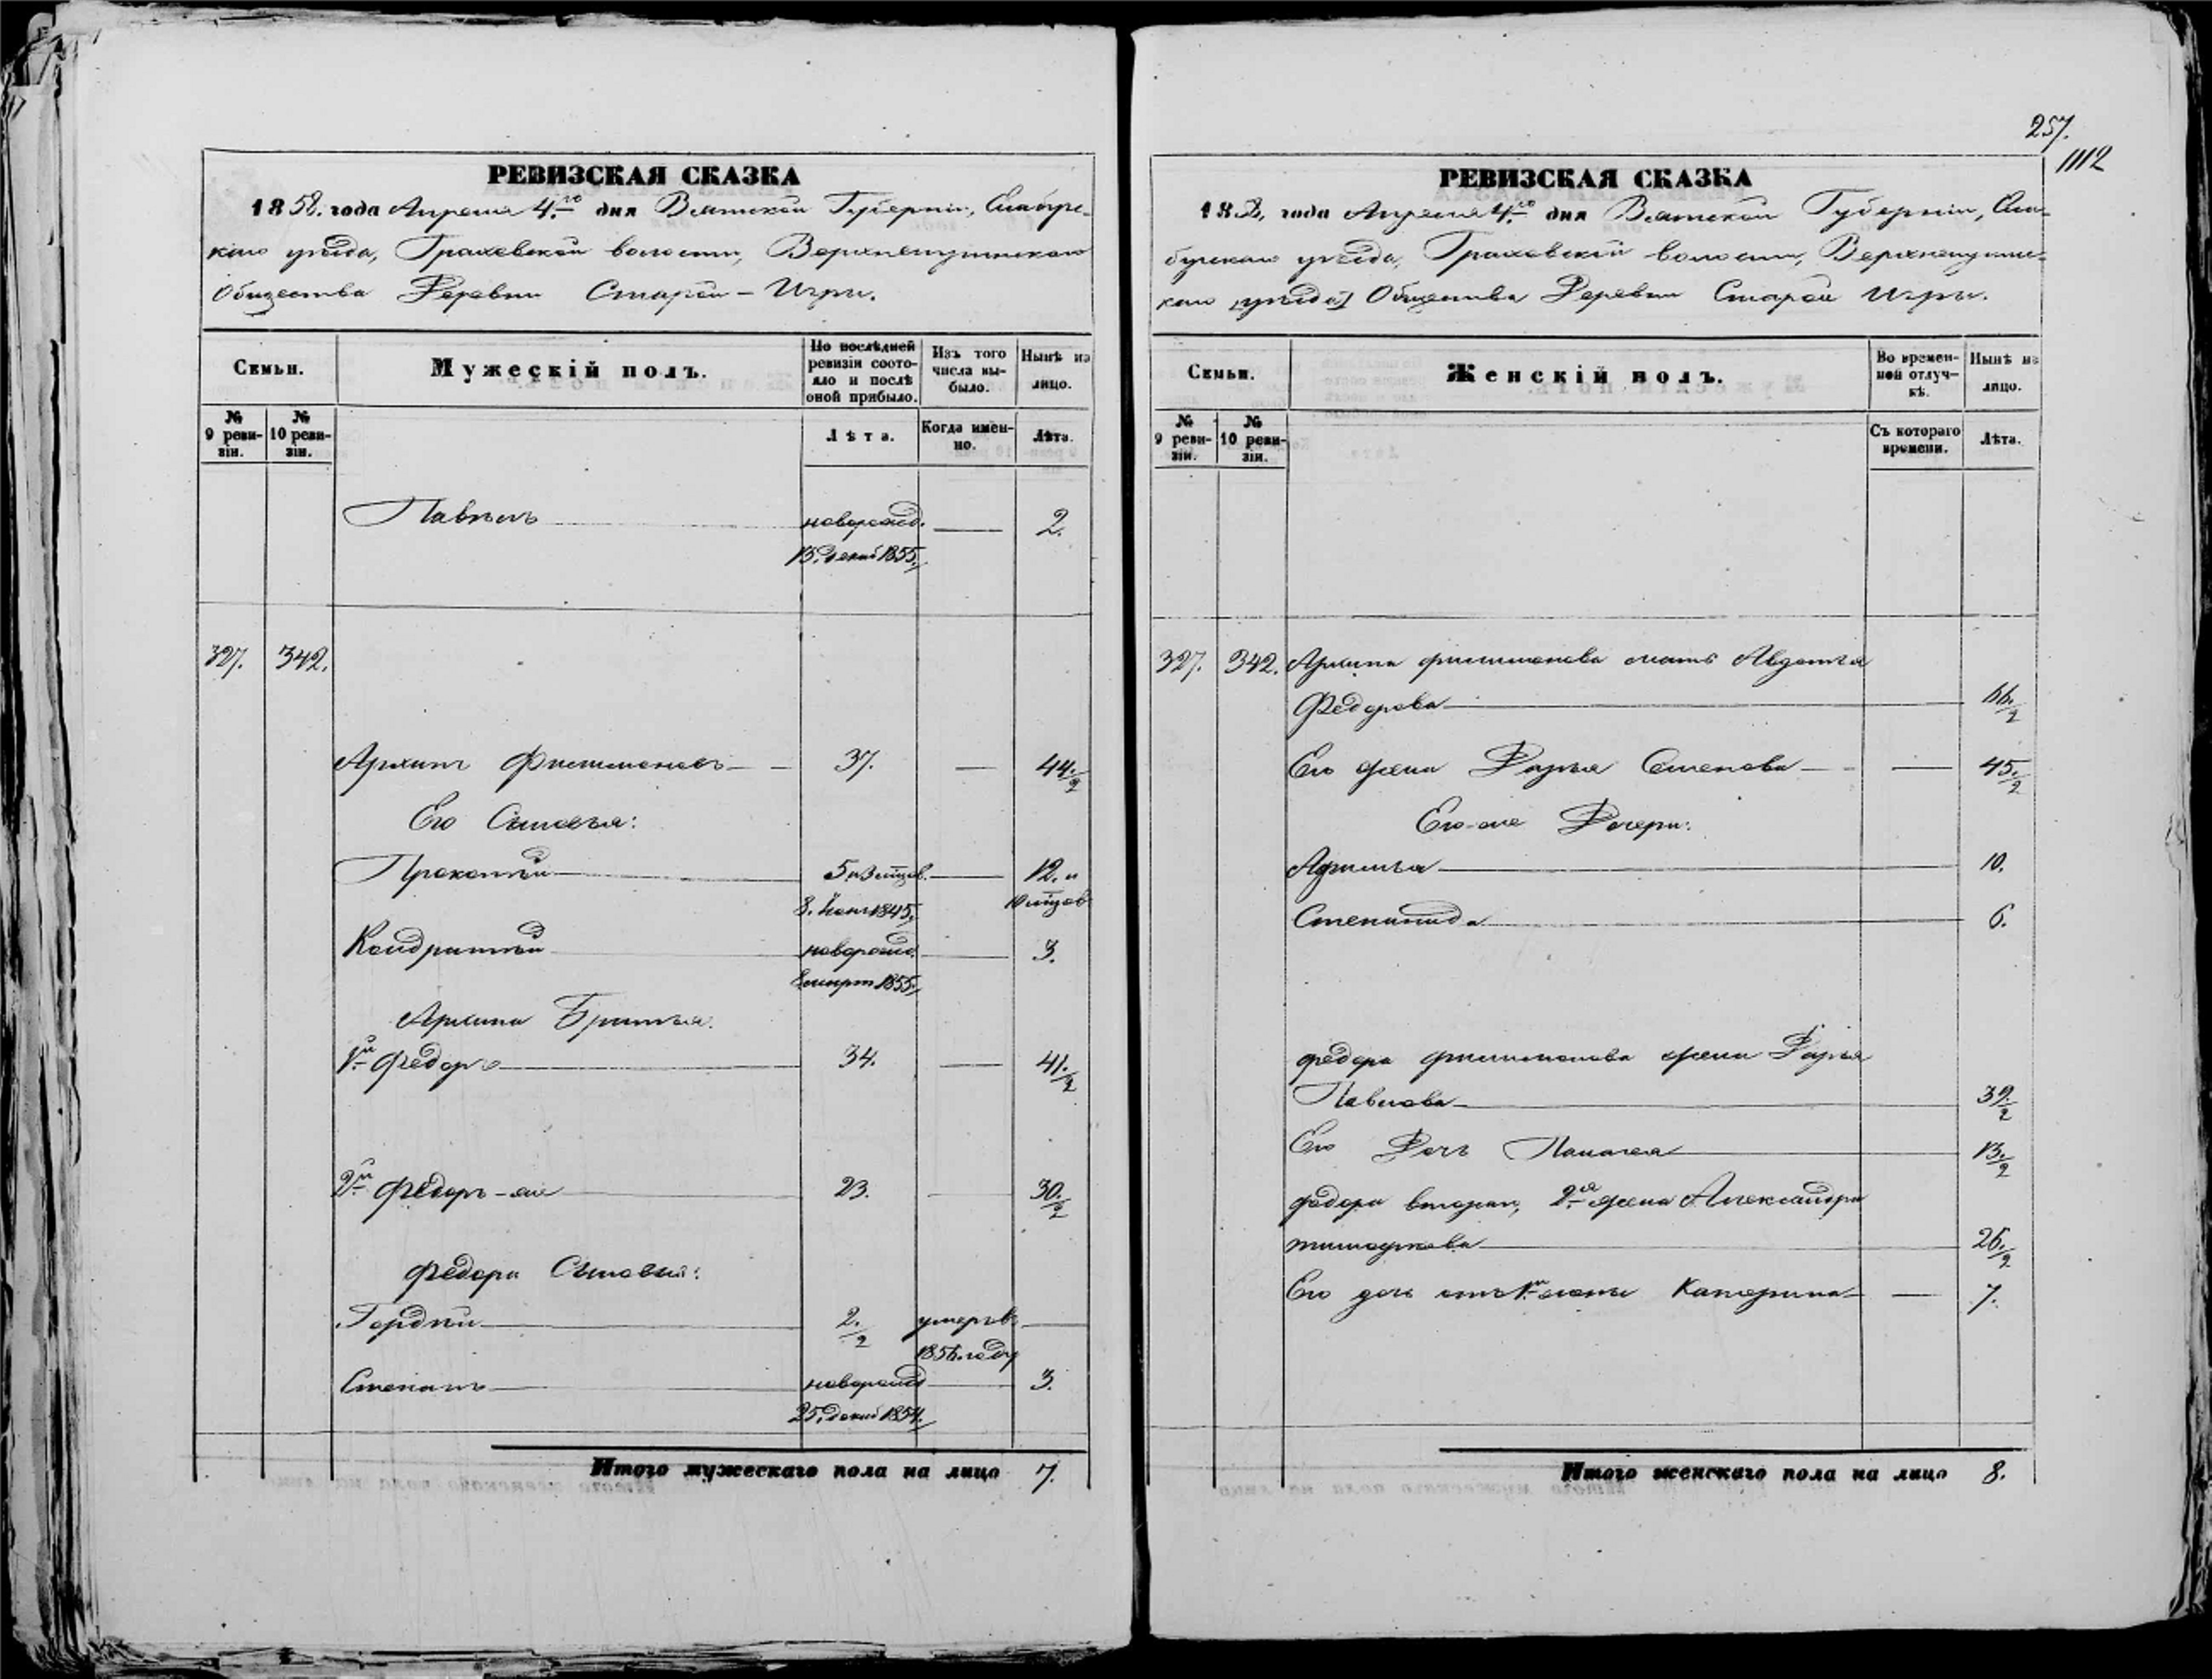 РЕВИЗСКАЯ СКАЗКА
1858. года Апреля 4.го дня Вятской Губернiи, Елабуж-
скаго уѣзда, Граховской волости,
Общества Деревни Старой - Игры.
Семьи.
Мужескiй полъ.
По послѣдней ревизiи состояло и послѣ оной прибыло.
Изъ того числа выбыло.
Нынѣ на лицо.
№ 9 ревизiи.
№ 10 ревизiи.
Лѣта.
Когда именно.
Лѣта.
Павелъ новорожд. — 2.
15. декаб 1855.
327. 342.
Архипъ Филимоновъ 37. — 44./2
Его Сыновья:
Прокопiй 5 и 3 мѣсяцов. — 12. и
8. 1845. 10 мѣсяцов
Кондратiй новорожд. — 3.
8 март 1855.
Архипа Братья:
1й Федоръ 34. — 41./2
2й Федоръ-же 23. — 30./2
Федора Сыновья:
Гордѣй 2./2 умеръ въ —
1856. году
Степанъ новорожд — 3.
25. декаб 1854.
Итого мужескаго пола на лицо 7.
257.
1112
РЕВИЗСКАЯ СКАЗКА
1858. года Апреля 4.го дня Вятской Губернiи, Ела-
бужскаго уѣзда, Граховской волости,
скаго [уѣзда] Общества Деревни Старой Игры.
Семьи.
Женскiй полъ.
Во временной отлучкѣ.
Нынѣ на лицо.
№ 9 ревизiи.
№ 10 ревизiи.
Съ котораго времени.
Лѣта.
327. 342. Архипа Филимонова мать Авдотья
Федорова 66./2
Его жена Дарья Семенова — 45./2
Его-же Дочери:
Афимья 10.
Степанида 6.
Федора Филимонова жена Дарья
Павлова 39./2
Его Дочь Палагея 13./2
Федора втораго, 2я жена Александра
Тимофеева 26./2
Его дочь отъ 1й жены Катерина — 7.
Итого женскаго пола на лицо 8.